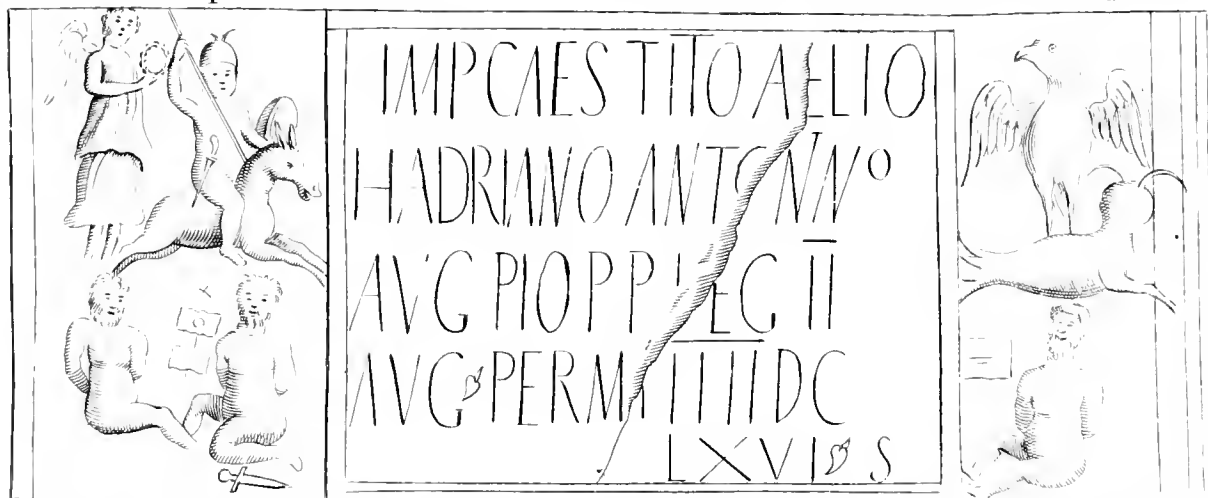 IMP CAES TITO AELIO
HADRIANO ANTONINO
AVG PIO P P LEG II
AVG PER M P IIII DC
LXVI S